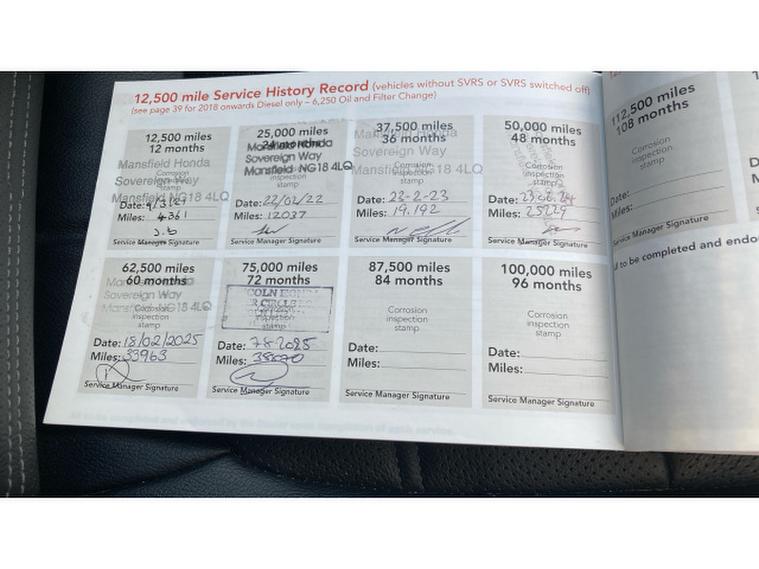 12,500 mile Service History Record (vehicles without SVRS or SVRS switched off)
(see page 39 for 2018 onwards Diesel only – 6,250 Oil and Filter Change)
12,500 miles
12 months
Mansfield Honda
Corrosion
Sovereign Way
inspection
stamp
Mansfield NG18 4LQ
Date: 9/3/21
Miles: 4361
Service Manager Signature
25,000 miles
24 months
Mansfield Honda
Sovereign Way
inspection
Mansfield NG18 4LQ
stamp
Date: 22/02/22
Miles: 12037
Service Manager Signature
37,500 miles
36 months
Mansfield Honda
Corrosion
Sovereign Way
inspection
Mansfield NG18 4LQ
stamp
Date: 23-2-23
Miles: 19,192
Service Manager Signature
50,000 miles
48 months
Corrosion
inspection
stamp
Date:
Miles: 25229
Service Manager Signature
62,500 miles
60 months
Mansfield Honda
Sovereign Way
Corrosion
inspection
Mansfield NG18 4LQ
stamp
Date: 18/02/2025
Miles: 33963
Service Manager Signature
75,000 miles
72 months
inspection
stamp
Date: 7 8 2025
Miles:
Service Manager Signature
87,500 miles
84 months
Corrosion
inspection
stamp
Date:
Miles:
Service Manager Signature
100,000 miles
96 months
Corrosion
inspection
stamp
Date:
Miles:
Service Manager Signature
112,500 miles
108 months
Corrosion
inspection
stamp
Date:
Miles:
Service Manager Signature
to be completed and endo